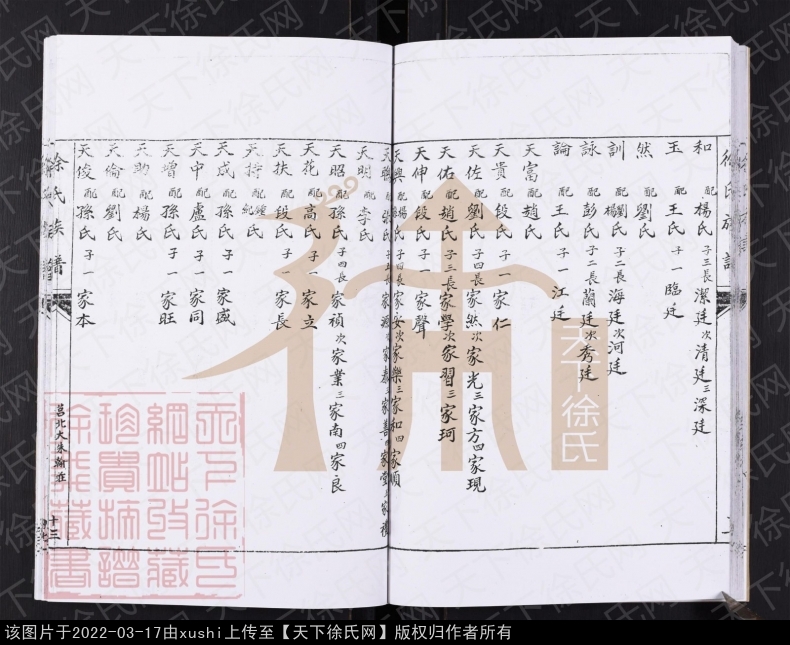 徐氏族譜
和 配楊氏 子三長潔廷次清廷三深廷
玉 配王氏 子一臨廷
然 配劉氏
訓 配劉氏楊氏 子二長海廷次河廷
詠 配彭氏 子二長蘭廷次秀廷
論 配王氏 子一江廷
天富 配趙氏
天貴 配段氏 子一家仁
天佐 配劉氏 子四長家然次家光三家方四家現
天佑 配趙氏 子三長家學次家習三家珂
天伸 配段氏 子一家聲
天興 配楊氏 子四長家安次家樂三家和四家順
天明 配李氏
天昭 配孫氏 子四長家禎次家業三家南四家良
天花 配高氏 子一家立
天扶 配段氏 子一家長
天成 配孫氏 子一家盛
天中 配盧氏 子一家同
天增 配孫氏 子一家旺
天助 配楊氏
天倫 配劉氏
天俊 配孫氏 子一家本
徐氏族譜
莒北大朱翰莊
十三
天下徐氏
天下徐氏网
天下徐氏
網帖收藏
珍貴摘譜
徐氏藏書
该图片于2022-03-17由xushi上传至【天下徐氏网】版权归作者所有